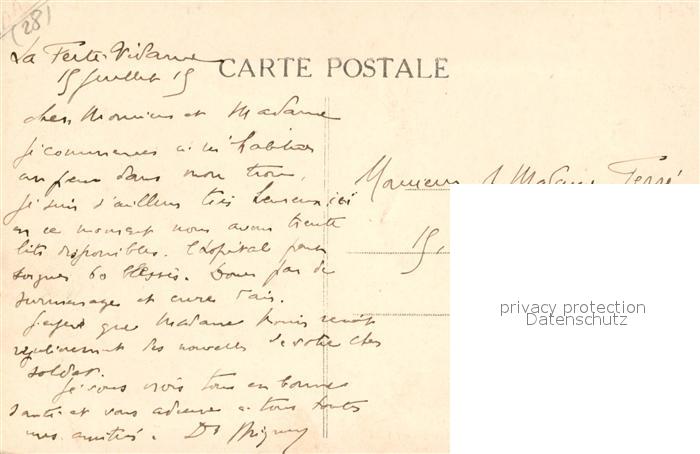 (28)
La Ferté-Vidame
15 Juillet 15
CARTE POSTALE
Cher Monsieur et Madame
Je commence à m'habituer
un peu dans mon trou,
Je suis d'ailleurs très heureux ici
en ce moment nous avons trente
lits disponibles. L'hôpital peut
soigner 60 blessés. Donc pas de
surmenage et cure d'air.
J'espère que Madame reçoit
régulièrement des nouvelles de votre cher
soldat.
Je vous crois tous en bonne
santé et vous adresse à tous toutes
mes amitiés. Dr
Monsieur & Madame Ferré
15,
privacy protection
Datenschutz